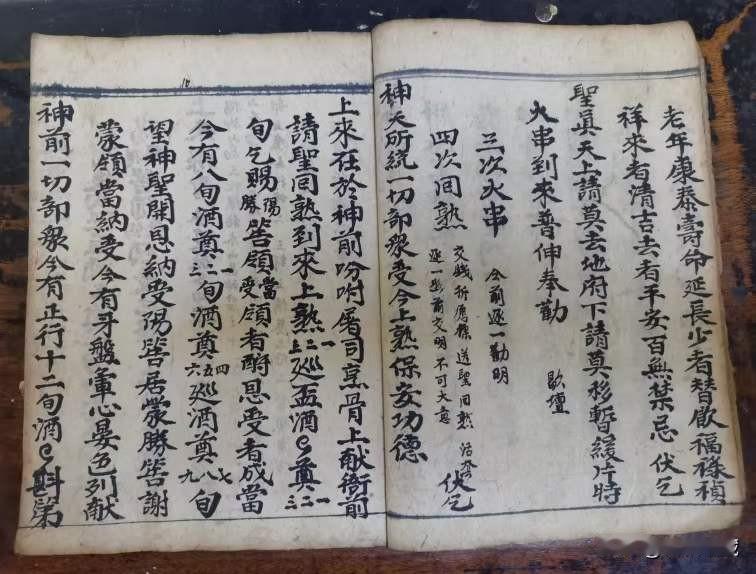 老年康泰壽命延長少者替僽福祿禎
祥來者清吉去者平安百無禁忌 伏乞
聖眞天上請莫去地府下請莫移暫緩片時
火串到來普伸奉勸 歇壇
三次火串 令前逐一勸明
四次囬熟 交錢折愿 送聖囬熟 逐一 前交明不可大意 伏乞
神天所統一切部衆受今上熟保安功德
上來在於神前吩咐屠司烹骨上献衙前
請聖囬熟到來上熟一二上巡盃酒奠一二三
旬乞賜陽勝筶領當受領者酧恩受者成當
今有八旬酒奠一二三旬酒奠四五六巡酒奠七八九旬
望神聖開恩納受陽筶居蒙勝筶謝
蒙領當納受今有牙盤軍心晏色列献
神前一切部衆今有正行十二旬酒 斟第